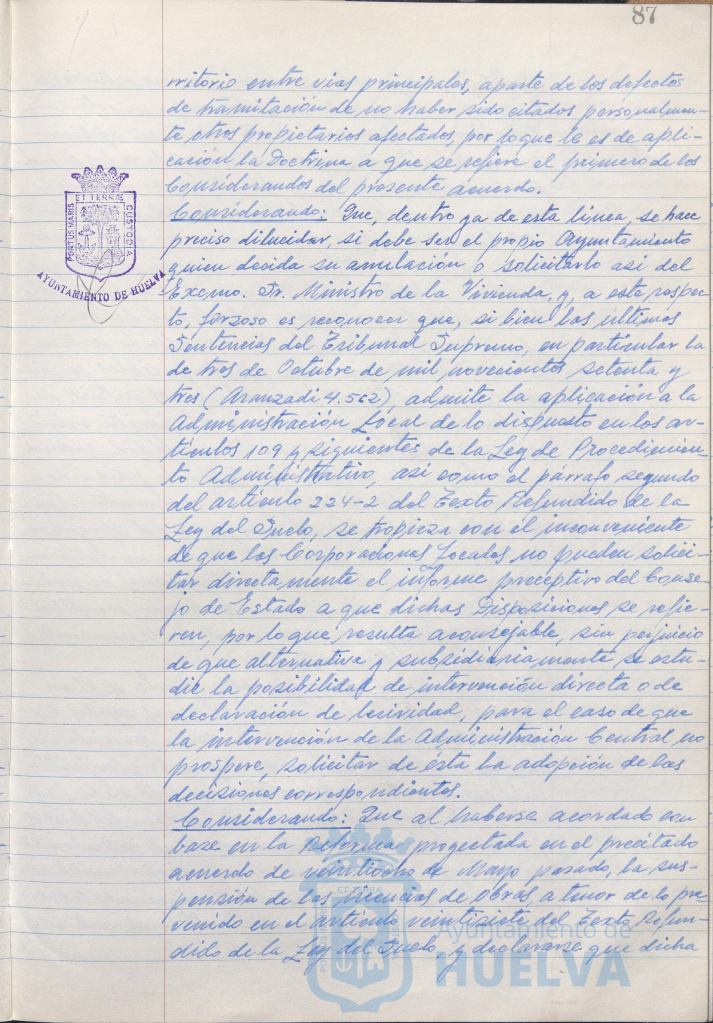 87
rritorio entre vias principales, aparte de los defectos
de tramitación de no haber sido citados personalmen-
te otros propietarios afectados, por lo que le es de apli-
cación la Doctrina a que se refiere el primero de los
Considerandos del presente acuerdo.
Considerando: Que, dentro ya de esta linea, se hace
preciso dilucidar, si debe ser el propio Ayuntamiento
quien decida su anulación o solicitarlo asi del
Excmo. Sr. Ministro de la Vivienda, y, a este respec-
to, forzoso es reconocer que, si bien las ultimas
Sentencias del Tribunal Supremo, en particular la
de tres de Octubre de mil novecientos setenta y
tres (Aranzadi 4.562) admite la aplicación a la
Administración Local de lo dispuesto en los ar-
tículos 109 y siguientes de la Ley de Procedimien-
to Administrativo, asi como el párrafo segundo
del artículo 224-2 del Texto Refundido de la
Ley del Suelo, se tropieza con el inconveniente
de que las Corporaciones Locales no pueden solici-
tar directamente el informe preceptivo del Conse-
jo de Estado a que dichas Disposiciones se refie-
ren, por lo que resulta aconsejable, sin perjuicio
de que alternativa y subsidiariamente se estu-
die la posibilidad de intervención directa o de
declaración de lesividad, para el caso de que
la intervención de la Administración Central no
prospere, solicitar de esta la adopción de las
decisiones correspondientes.
Considerando: Que al haberse acordado con
base en la Reforma proyectada en el precitado
acuerdo de veintiocho de Mayo pasado, la sus-
pensión de las licencias de obras, a tenor de lo pre-
venido en el artículo veintisiete del Texto Refun-
dido de la Ley del Suelo, y declararse que dicha
PORTUS MARIS
ET TERRÆ
CUSTODIA
AYUNTAMIENTO DE HUELVA
ET TERRÆ
Ayuntamiento de
HUELVA